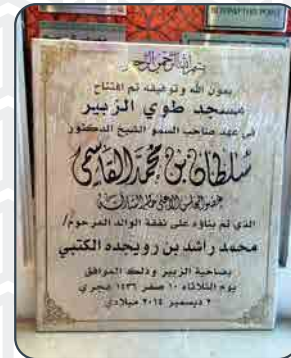 بسم الله الرحمن الرحيم
بعون الله وتوفيقه تم افتتاح
مسجد طوي الزبير
في عهد صاحب السمو الشيخ الدكتور
سلطان بن محمد القاسمي
عضو المجلس الأعلى حاكم الشارقة
الذي تم بناؤه على نفقة الوالد المرحوم/
محمد راشد بن رويجده الكتبي
بضاحية الزبير وذلك الموافق
يوم الثلاثاء ١٠ صفر ١٤٣٦ هجري
٢ ديسمبر ٢٠١٤ ميلادي